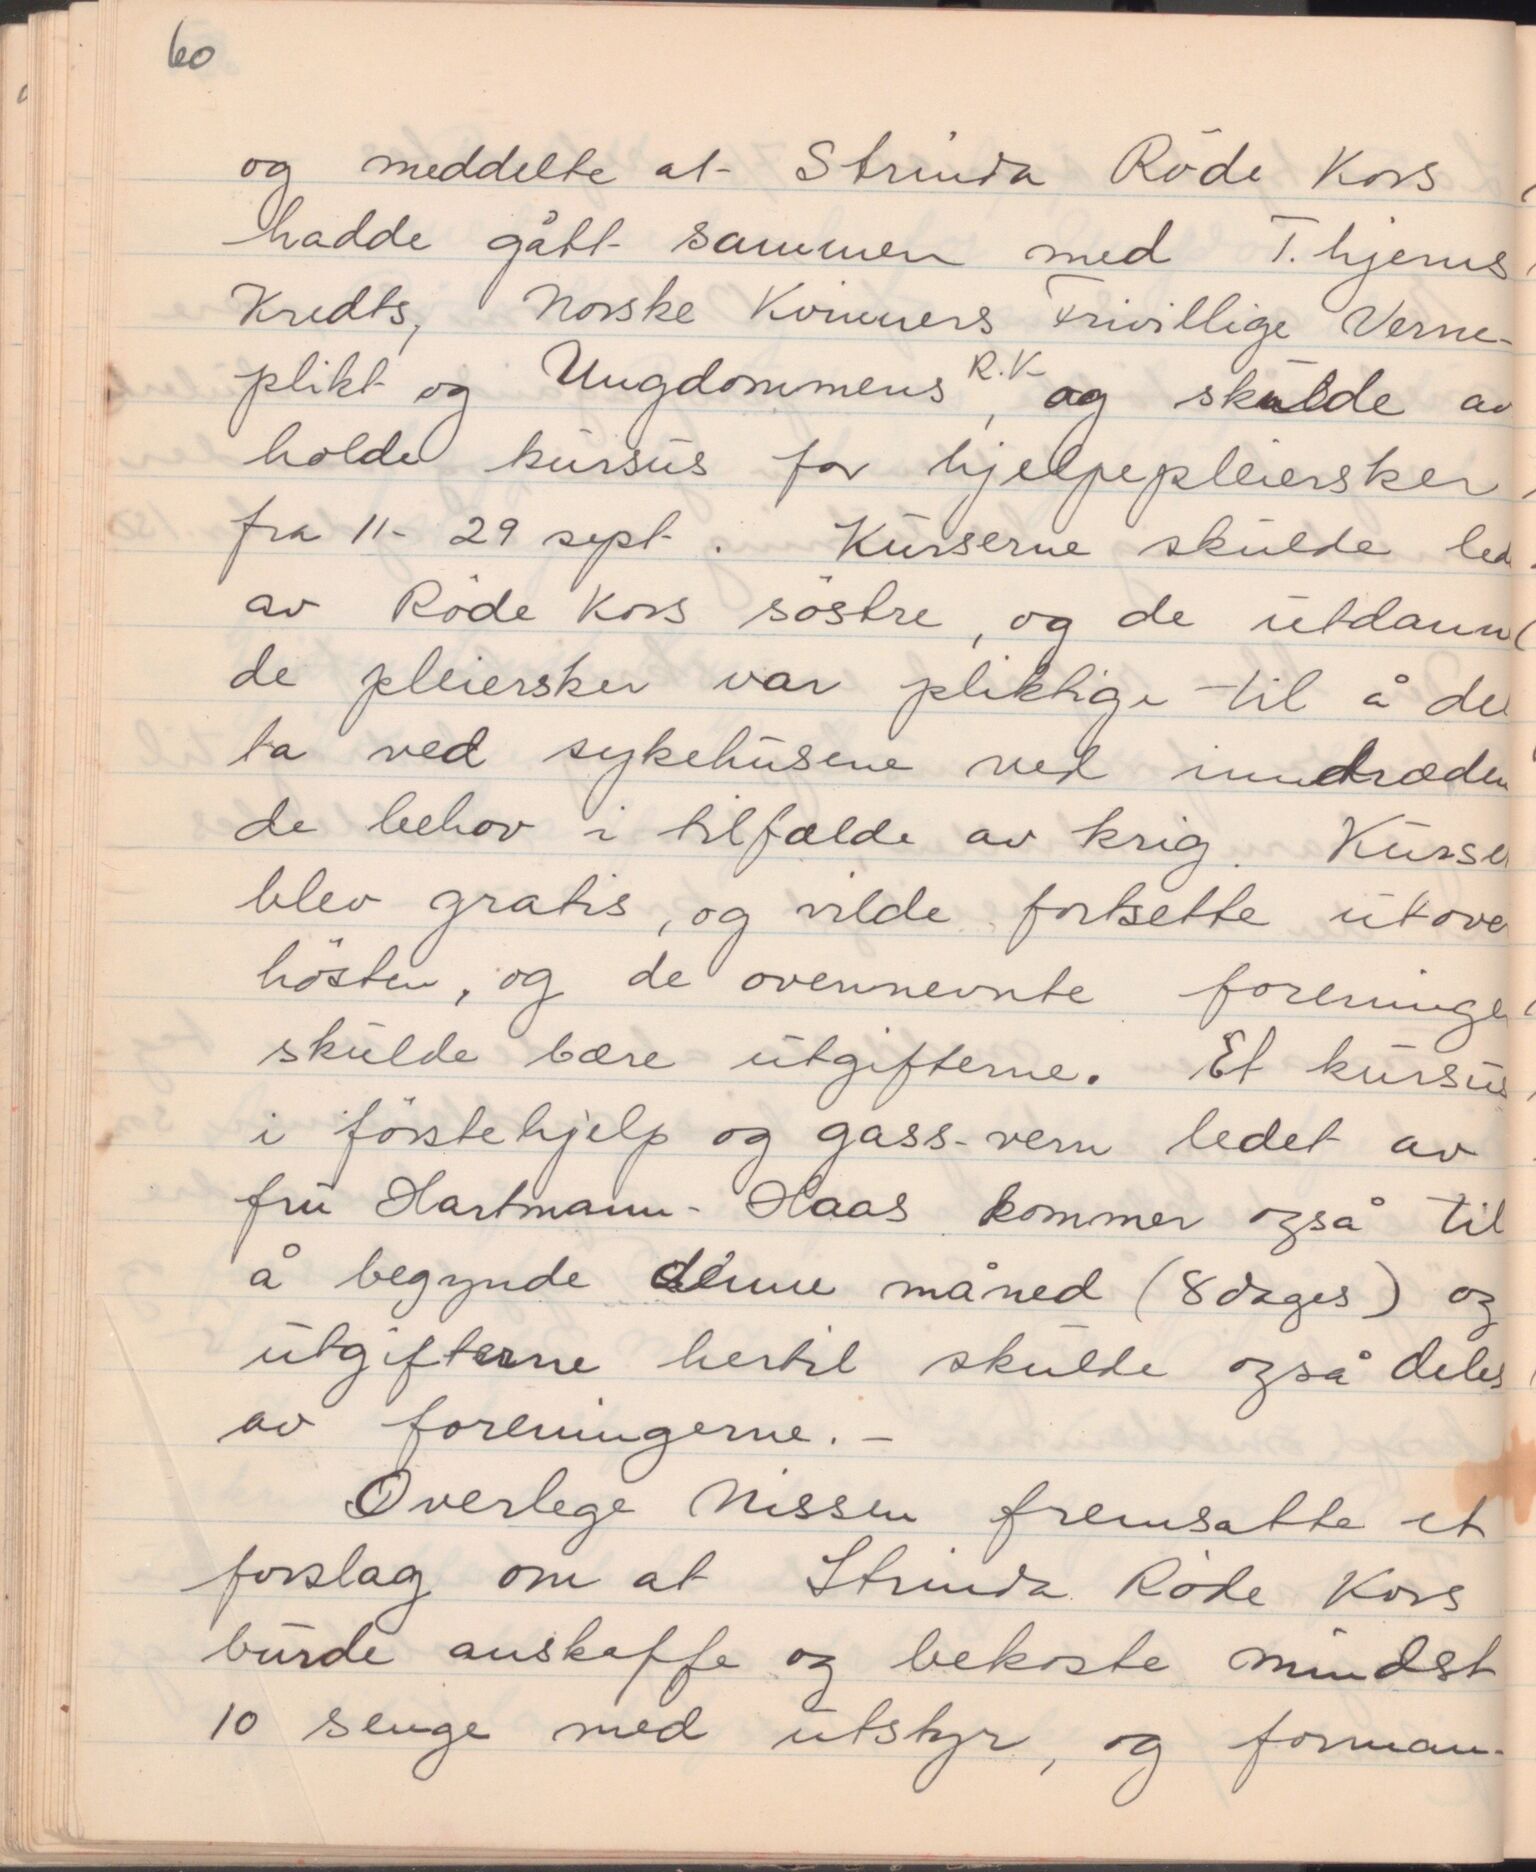 60
og meddelte at Strinda Röde Kors
hadde gått sammen med T.hjems
Kredts, Norske Kvinners Frivillige Verne-
plikt og Ungdommens R.K., og skulde av
holde kursus for hjelpepleiersker
fra 11- 29 sept. Kurserne skulde led
av Röde Kors söstre, og de utdann
de pleiersker var pliktige til å del
ta ved sykehusene ved inndræden
de behov i tilfælde av krig. Kurse
blev gratis, og vilde fortsette utove
hösten, og de ovennevnte foreninge
skulde bære utgifterne. Et kursus
i förstehjelp og gass-vern ledet av
fru Hartmann-Haas kommer også til
å begynde denne måned (8 dages) og
utgifterne hertil skulde også deles
av foreningerne. -
Overlege Nissen fremsatte et
forslag om at Strinda Röde Kors
burde anskaffe og bekoste mindst
10 senge med utstyr, og forman-